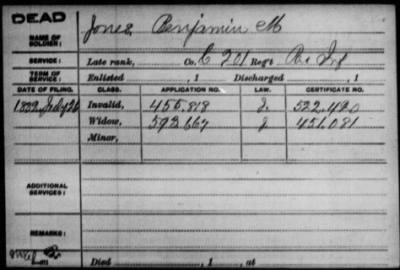 DEAD
NAME OF SOLDIER: Jones, Benjamin M
SERVICE: Late rank, Co. C 201 Reg't Pa Inf
TERM OF SERVICE: Enlisted , 1 Discharged , 1
DATE OF FILING. CLASS. APPLICATION NO. LAW. CERTIFICATE NO.
July 26 Invalid, 455.818 J. 522.490
Widow, 593.667 J 451.081
Minor,
ADDITIONAL SERVICES:
REMARKS:
Died , 1 , at